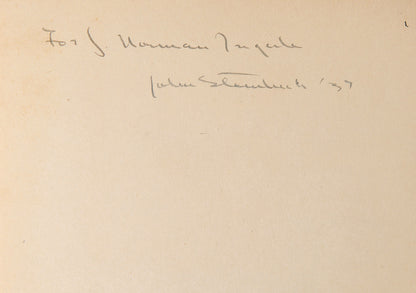 For J. Norman Ingerle
John Steinbeck '37